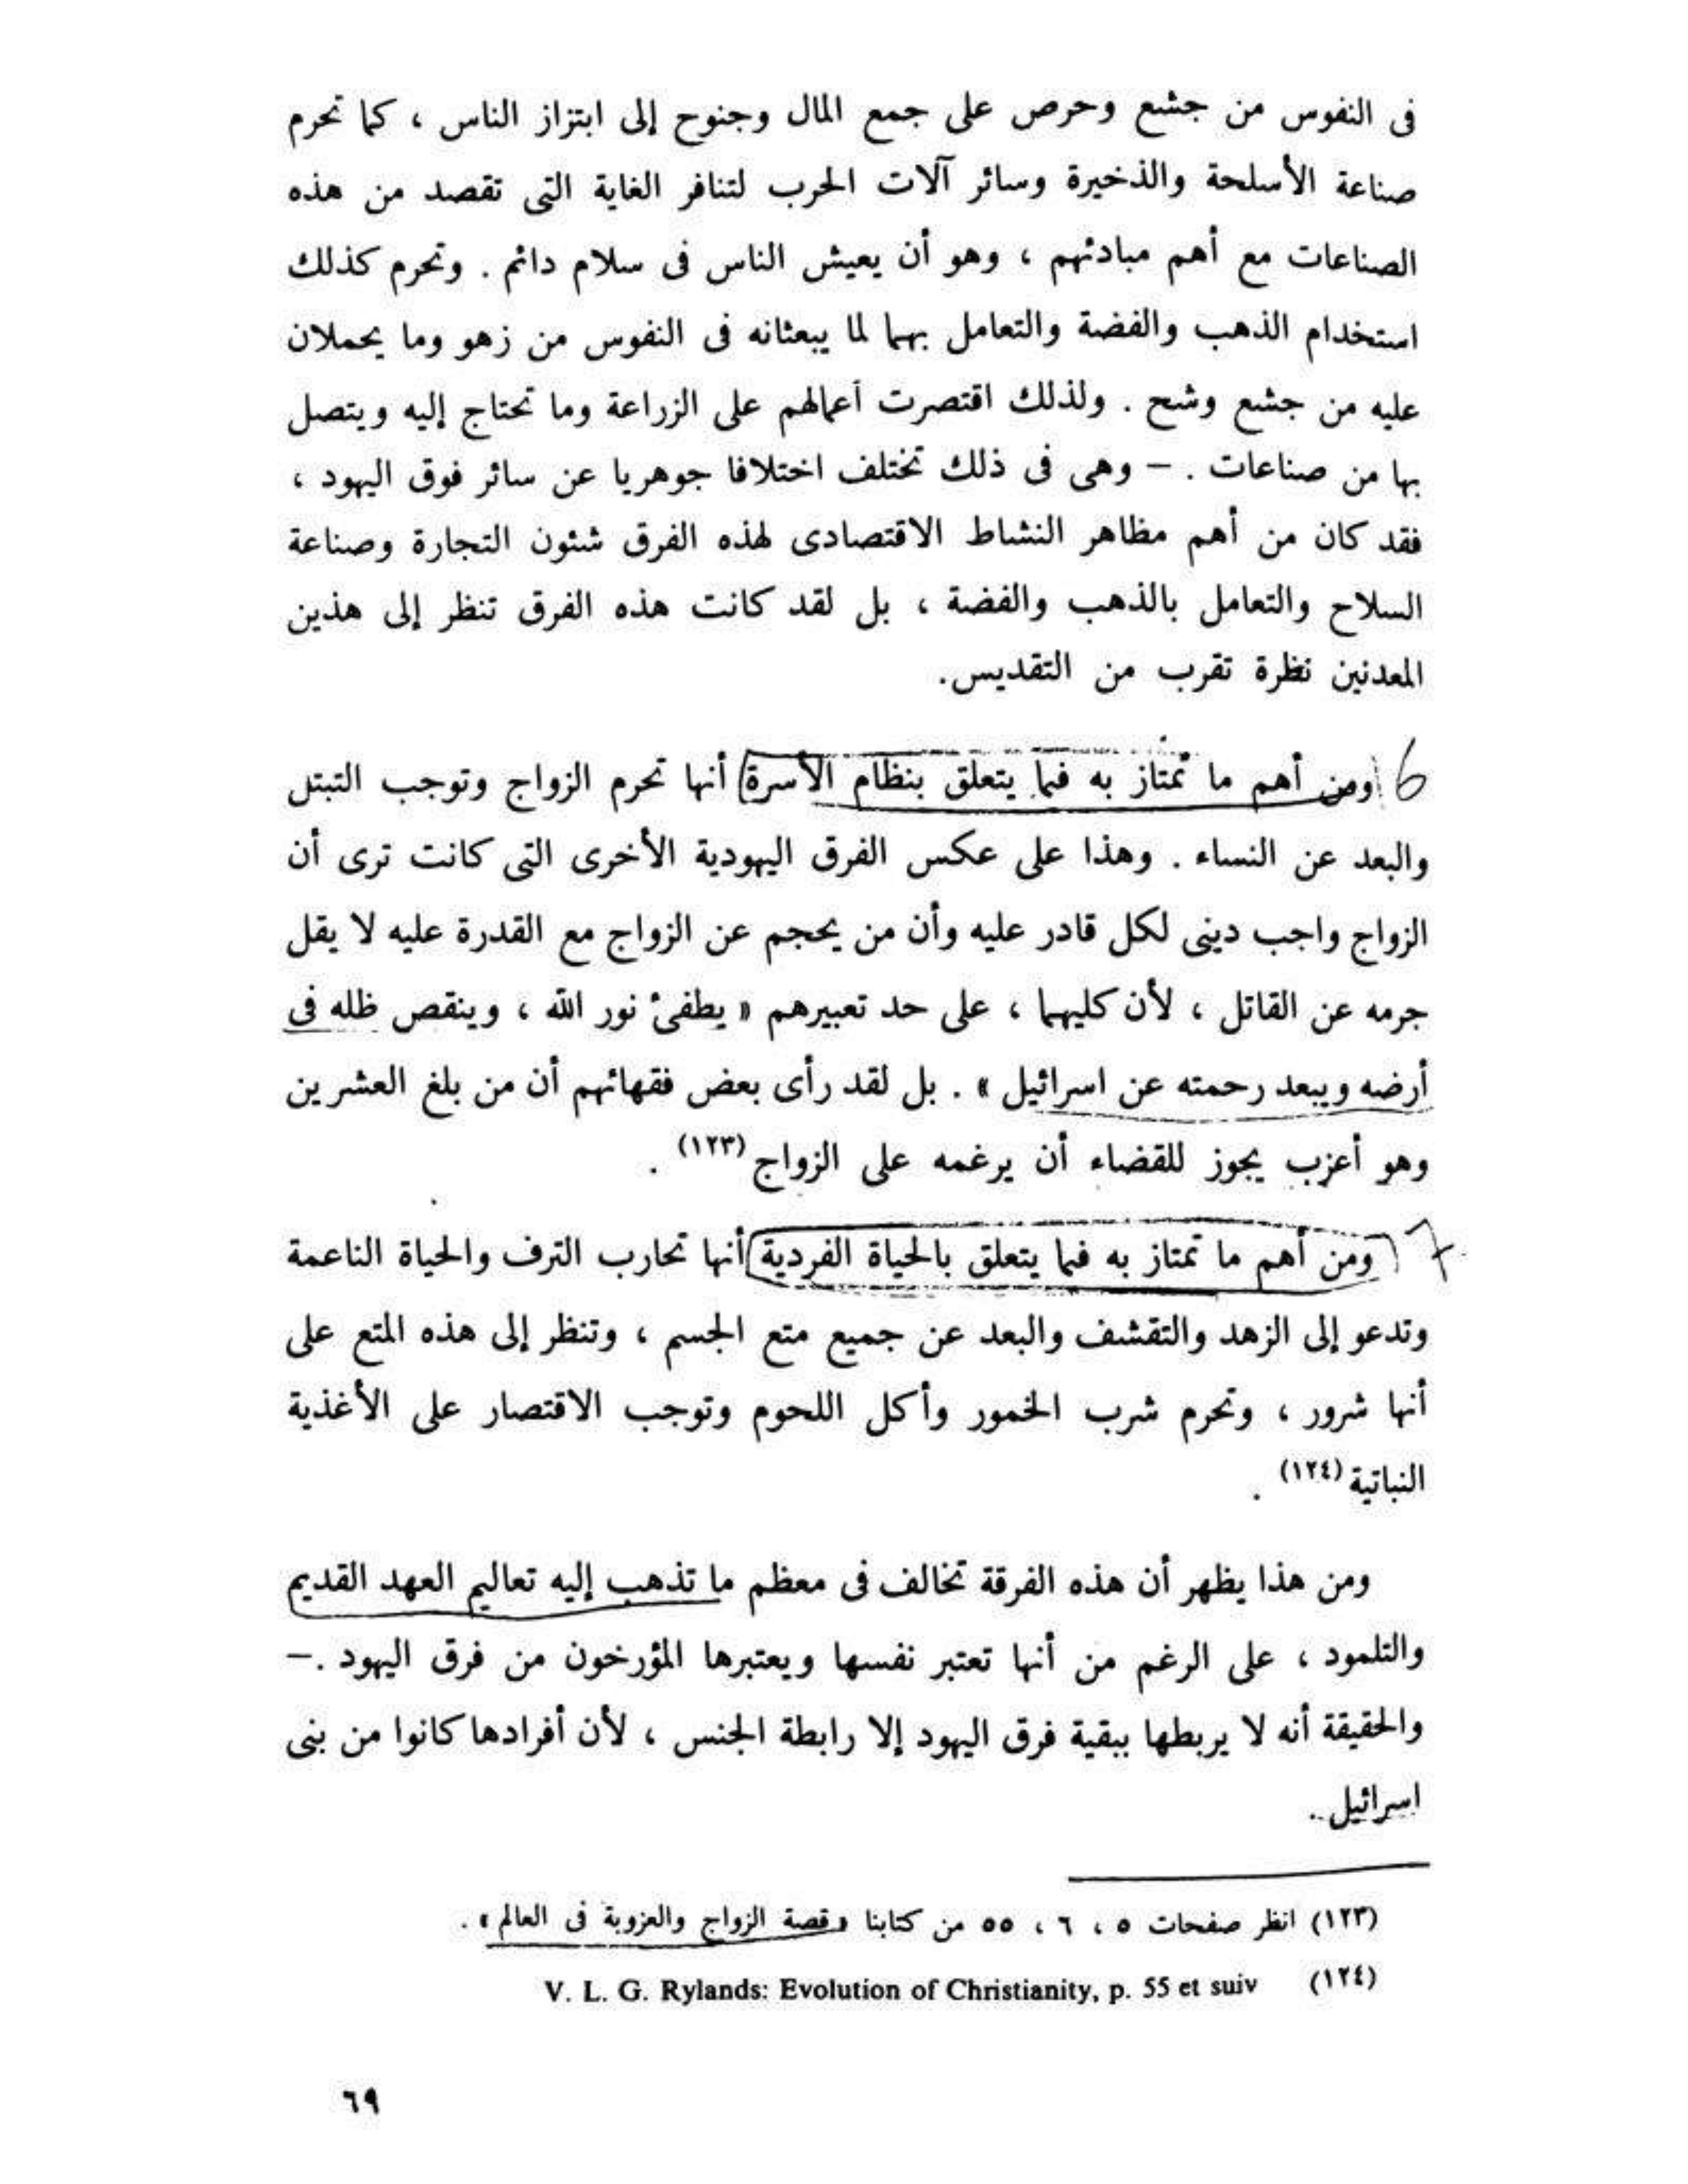 فى النفوس من جشع وحرص على جمع المال وجنوح إلى ابتزاز الناس ، كما تحرم
صناعة الأسلحة والذخيرة وسائر آلات الحرب لتنافر الغاية التى تقصد من هذه
الصناعات مع أهم مبادئهم ، وهو أن يعيش الناس فى سلام دائم . وتحرم كذلك
استخدام الذهب والفضة والتعامل بهما لما يبعثانه فى النفوس من زهو وما يحملان
عليه من جشع وشح . ولذلك اقتصرت أعمالهم على الزراعة وما تحتاج إليه ويتصل
بها من صناعات . – وهى فى ذلك تختلف اختلافا جوهريا عن سائر فوق اليهود ،
فقد كان من أهم مظاهر النشاط الاقتصادى لهذه الفرق شئون التجارة وصناعة
السلاح والتعامل بالذهب والفضة ، بل لقد كانت هذه الفرق تنظر إلى هذين
المعدنين نظرة تقرب من التقديس.
6 ومن أهم ما تمتاز به فيما يتعلق بنظام الأسرة أنها تحرم الزواج وتوجب التبتل
والبعد عن النساء . وهذا على عكس الفرق اليهودية الأخرى التى كانت ترى أن
الزواج واجب دينى لكل قادر عليه وأن من يحجم عن الزواج مع القدرة عليه لا يقل
جرمه عن القاتل ، لأن كليهما ، على حد تعبيرهم « يطفئ نور الله ، وينقص ظله فى
أرضه ويبعد رحمته عن اسرائيل » . بل لقد رأى بعض فقهائهم أن من بلغ العشرين
وهو أعزب يجوز للقضاء أن يرغمه على الزواج (١٢٣) .
7 ومن أهم ما تمتاز به فيما يتعلق بالحياة الفردية أنها تحارب الترف والحياة الناعمة
وتدعو إلى الزهد والتقشف والبعد عن جميع متع الجسم ، وتنظر إلى هذه المتع على
أنها شرور ، وتحرم شرب الخمور وأكل اللحوم وتوجب الاقتصار على الأغذية
النباتية (١٢٤) .
ومن هذا يظهر أن هذه الفرقة تخالف فى معظم ما تذهب إليه تعاليم العهد القديم
والتلمود ، على الرغم من أنها تعتبر نفسها ويعتبرها المؤرخون من فرق اليهود .–
والحقيقة أنه لا يربطها ببقية فرق اليهود إلا رابطة الجنس ، لأن أفرادها كانوا من بنى
اسرائيل .
(١٢٣) انظر صفحات ٥ ، ٦ ، ٥٥ من كتابنا «قصة الزواج والعزوبة فى العالم» .
(١٢٤) V. L. G. Rylands: Evolution of Christianity, p. 55 et suiv
٦٩